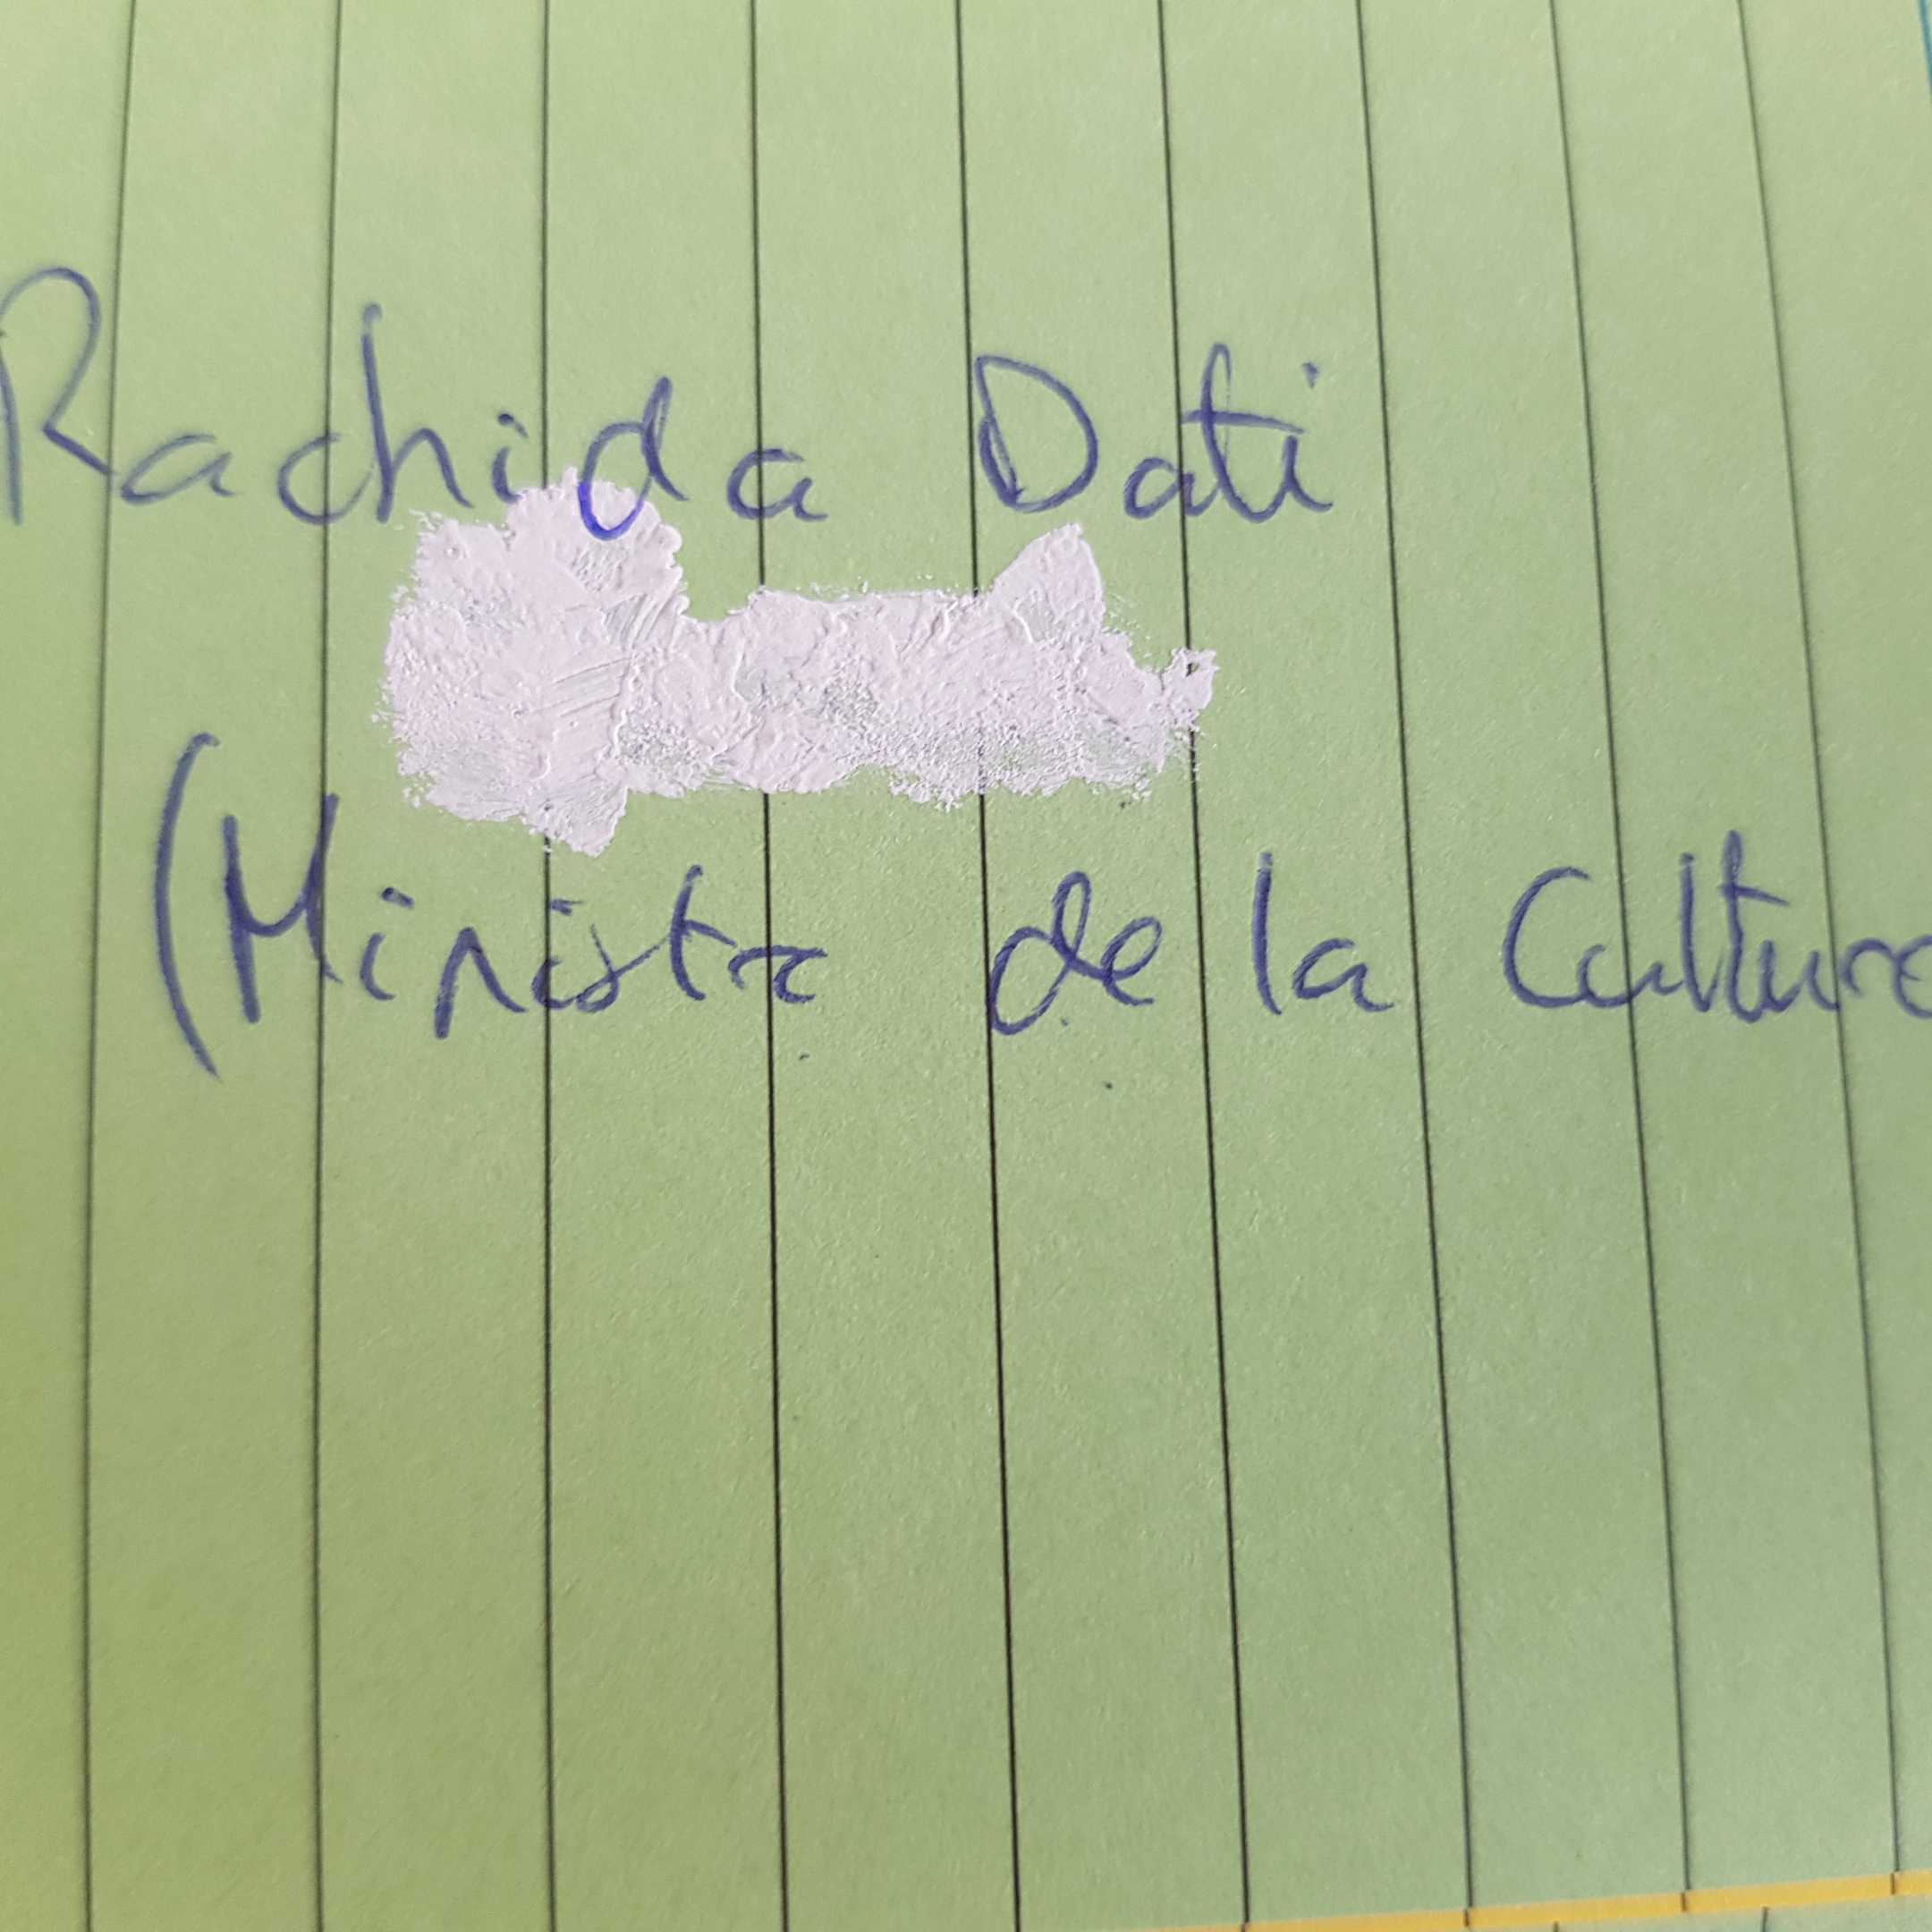 Rachida Dati
(Ministre de la Culture